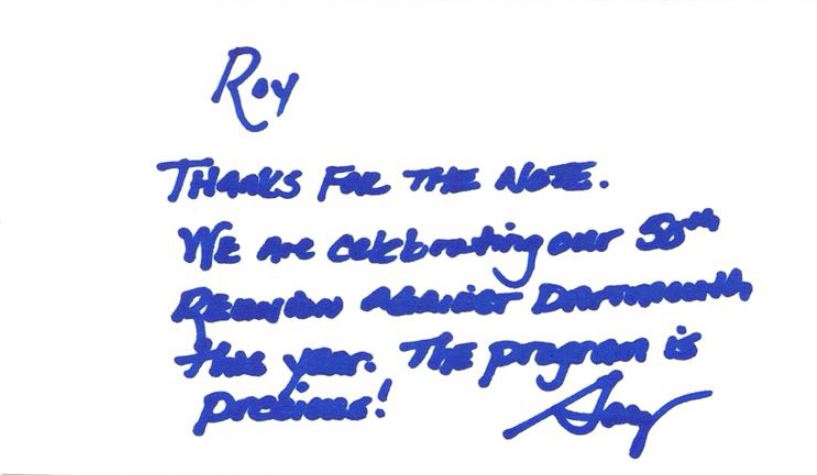 Roy
THANKS FOR THE NOTE.
WE ARE celebrating our 50th
REUNION AGAINST DARTMOUTH
this year. The program is
precious! Gary